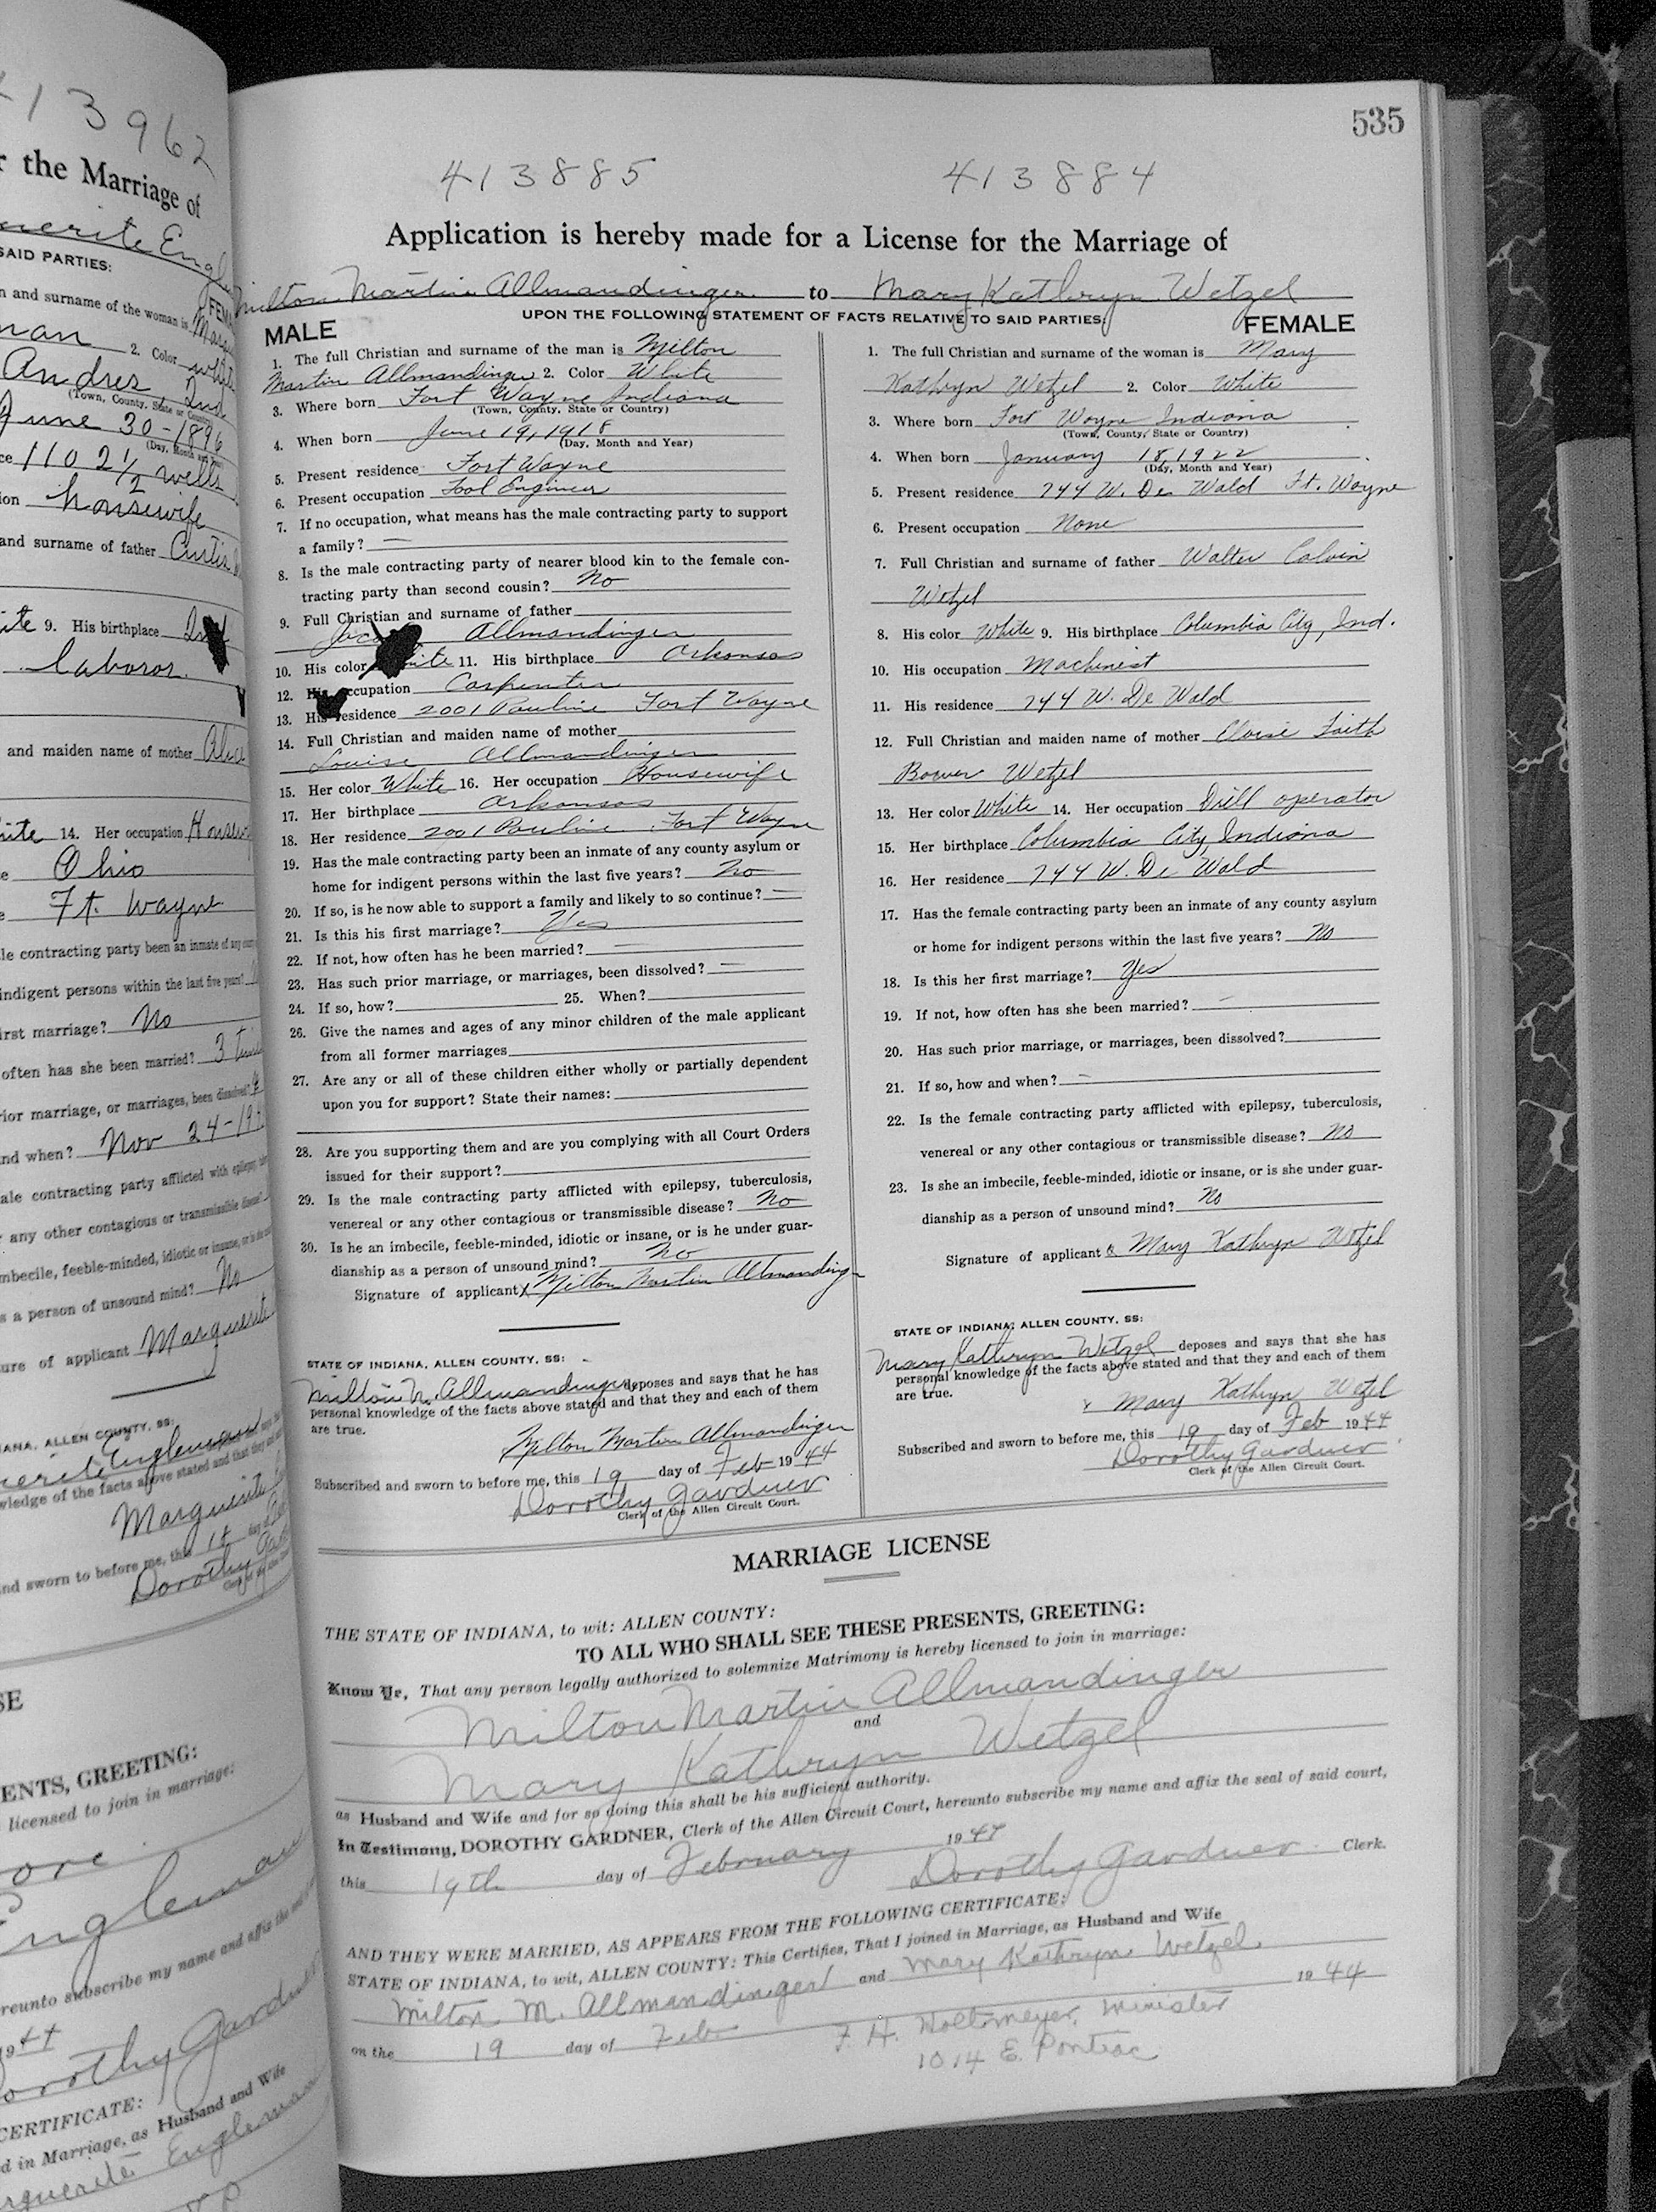 413962
r the Marriage of
SAID PARTIES:
n and surname of the woman is
2. Color white
Andres Ind
(Town, County, State or Country)
June 30-1896
1102 1/2 wells
housewife
and surname of father Curtis
ite 9. His birthplace Ind
laborer
and maiden name of mother
ite 14. Her occupation
Ohio
Ft. Wayne
le contracting party been an inmate of any
indigent persons within the last five years?
irst marriage? No
often has she been married? 3
rior marriage, or marriages, been dissolved?
nd when? Nov 24-19
ale contracting party afflicted with epilepsy
r any other contagious or transmissible disease?
mbecile, feeble-minded, idiotic or insane,
s a person of unsound mind? No
ure of applicant Marguerite
IANA, ALLEN COUNTY, SS:
wledge of the facts above stated and that they and
Marguerite
nd sworn to before me, this
Dorothy
SE
ENTS, GREETING:
licensed to join in marriage:
ore
Engleman
reunto subscribe my name and affix the
1944
Dorothy Gardner
CERTIFICATE:
d in Marriage, as Husband and Wife
535
413885 413884
Application is hereby made for a License for the Marriage of
Milton Martin Allmandinger to Mary Kathryn Wetzel
UPON THE FOLLOWING STATEMENT OF FACTS RELATIVE TO SAID PARTIES:
MALE
1. The full Christian and surname of the man is Milton
Martin Allmandinger 2. Color White
3. Where born Fort Wayne Indiana
(Town, County, State or Country)
4. When born June 19, 1918
(Day, Month and Year)
5. Present residence Fort Wayne
6. Present occupation Tool Engineer
7. If no occupation, what means has the male contracting party to support
a family? —
8. Is the male contracting party of nearer blood kin to the female con-
tracting party than second cousin? No
9. Full Christian and surname of father
Allmandinger
10. His color White 11. His birthplace Arkansas
12. His occupation Carpenter
13. His residence 2001 Pauline Fort Wayne
14. Full Christian and maiden name of mother
Louise Allmandinger
15. Her color White 16. Her occupation Housewife
17. Her birthplace Arkansas
18. Her residence 2001 Pauline Fort Wayne
19. Has the male contracting party been an inmate of any county asylum or
home for indigent persons within the last five years? No
20. If so, is he now able to support a family and likely to so continue? —
21. Is this his first marriage? Yes
22. If not, how often has he been married? —
23. Has such prior marriage, or marriages, been dissolved? —
24. If so, how? 25. When?
26. Give the names and ages of any minor children of the male applicant
from all former marriages
27. Are any or all of these children either wholly or partially dependent
upon you for support? State their names:
28. Are you supporting them and are you complying with all Court Orders
issued for their support?
29. Is the male contracting party afflicted with epilepsy, tuberculosis,
venereal or any other contagious or transmissible disease? No
30. Is he an imbecile, feeble-minded, idiotic or insane, or is he under guar-
dianship as a person of unsound mind? No
Signature of applicant x Milton Martin Allmandinger
STATE OF INDIANA, ALLEN COUNTY, SS:
Milton M. Allmandinger deposes and says that he has
personal knowledge of the facts above stated and that they and each of them
are true.
Milton Martin Allmandinger
Subscribed and sworn to before me, this 19 day of Feb 1944
Dorothy Gardner
Clerk of the Allen Circuit Court.
FEMALE
1. The full Christian and surname of the woman is Mary
Kathryn Wetzel 2. Color White
3. Where born Fort Wayne Indiana
(Town, County, State or Country)
4. When born January 18, 1922
(Day, Month and Year)
5. Present residence 744 W. De Wald Ft. Wayne
6. Present occupation None
7. Full Christian and surname of father Walter Calvin
Wetzel
8. His color White 9. His birthplace Columbia City, Ind.
10. His occupation Machinist
11. His residence 744 W. De Wald
12. Full Christian and maiden name of mother Eloise Faith
Bower Wetzel
13. Her color White 14. Her occupation Drill operator
15. Her birthplace Columbia City, Indiana
16. Her residence 744 W. De Wald
17. Has the female contracting party been an inmate of any county asylum
or home for indigent persons within the last five years? No
18. Is this her first marriage? Yes
19. If not, how often has she been married? —
20. Has such prior marriage, or marriages, been dissolved?
21. If so, how and when? —
22. Is the female contracting party afflicted with epilepsy, tuberculosis,
venereal or any other contagious or transmissible disease? No
23. Is she an imbecile, feeble-minded, idiotic or insane, or is she under guar-
dianship as a person of unsound mind? No
Signature of applicant x Mary Kathryn Wetzel
STATE OF INDIANA, ALLEN COUNTY, SS:
Mary Kathryn Wetzel deposes and says that she has
personal knowledge of the facts above stated and that they and each of them
are true.
x Mary Kathryn Wetzel
Subscribed and sworn to before me, this 19 day of Feb 1944
Dorothy Gardner
Clerk of the Allen Circuit Court.
MARRIAGE LICENSE
THE STATE OF INDIANA, to wit: ALLEN COUNTY:
TO ALL WHO SHALL SEE THESE PRESENTS, GREETING:
Know Ye, That any person legally authorized to solemnize Matrimony is hereby licensed to join in marriage:
Milton Martin Allmandinger
and
Mary Kathryn Wetzel
as Husband and Wife and for so doing this shall be his sufficient authority.
In Testimony, DOROTHY GARDNER, Clerk of the Allen Circuit Court, hereunto subscribe my name and affix the seal of said court,
this 19th day of February 1944
Dorothy Gardner Clerk.
AND THEY WERE MARRIED, AS APPEARS FROM THE FOLLOWING CERTIFICATE:
STATE OF INDIANA, to wit, ALLEN COUNTY: This Certifies, That I joined in Marriage, as Husband and Wife
Milton M. Allmandinger and Mary Kathryn Wetzel
on the 19 day of Feb 1944
F. H. Holtzmeyer, Minister
1014 E. Pontiac